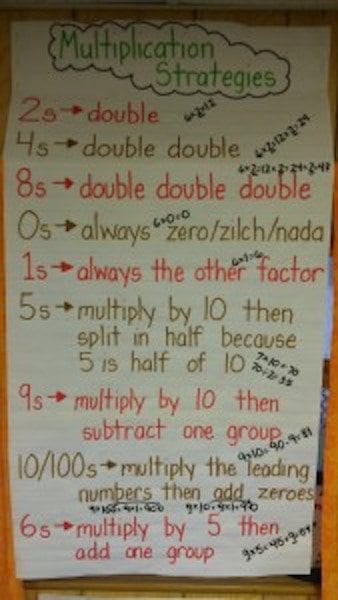 Multiplication
Strategies
2s → double 6×2=12
4s → double double 6×2=12×2=24
8s → double double double 6×2=12×2=24×2=48
0s → always zero/zilch/nada 6×0=0
1s → always the other factor 6×1=6
5s → multiply by 10 then
split in half because
5 is half of 10 7×10=70
70÷2=35
9s → multiply by 10 then
subtract one group
10/100s → multiply the leading
numbers then add zeroes
6s → multiply by 5 then
add one group